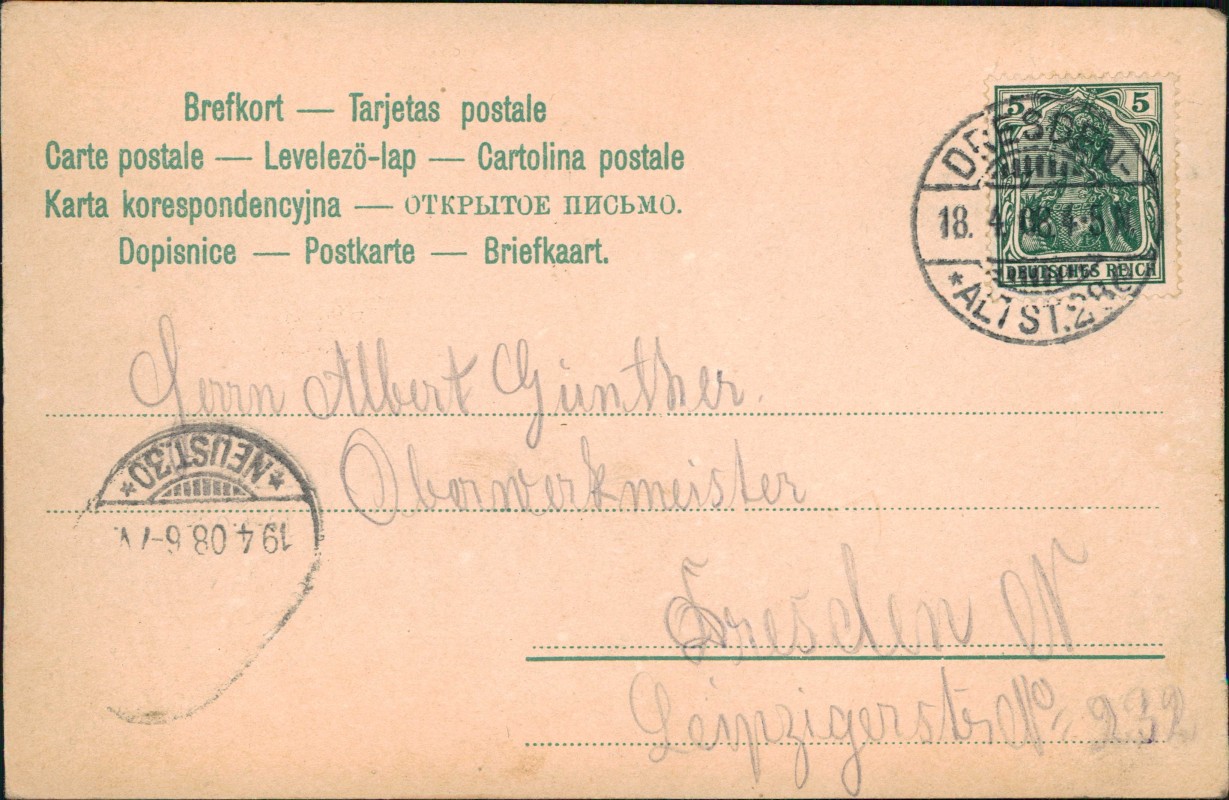 Brefkort — Tarjetas postale
Carte postale — Levelezö-lap — Cartolina postale
Karta korespondencyjna — ОТКРЫТОЕ ПИСЬМО.
Dopisnice — Postkarte — Briefkaart.
5 5
DEUTSCHES REICH
DRESDEN-
18. 4. 08. 4-5 N.
*ALTST. 28
Herrn Albert Günther.
Oberwerkmeister
Dresden N
Leipzigerstr. No 232
*NEUST.30*
19.4.08.6-7V.